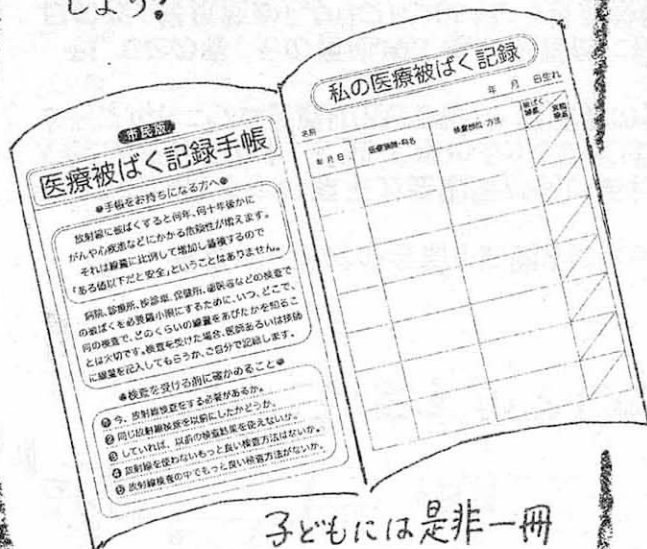 しょう?
市民版
医療被ばく記録手帳
●手帳をお持ちになる方へ●
放射線に被ばくすると何年、何十年後かに
がんや心疾患などにかかる危険性が増えます。
それは線量に比例して増加し蓄積するので
「ある値以下だと安全」ということはありません。
病院、診療所、検診車、保健所、歯医者などの検査で
の被ばくを必要最小限にするために、いつ、どこで、
何の検査で、どのくらいの線量をあびたかを知るこ
とは大切です。検査を受けた場合、医師あるいは技師
に線量を記入してもらうか、ご自分で記録します。
●検査を受ける前に確かめること●
❶ 今、放射線検査をする必要があるか。
❷ 同じ放射線検査を以前にしたかどうか。
❸ していれば、以前の検査結果を使えないか。
❹ 放射線を使わないもっと良い検査方法はないか。
❺ 放射線検査の中でもっと良い検査方法がないか。
私の医療被ばく記録
年 月 日生れ
名前
年月日
医療機関・科名
検査部位・方法
被ばく線量
実効線量
子どもには是非一冊